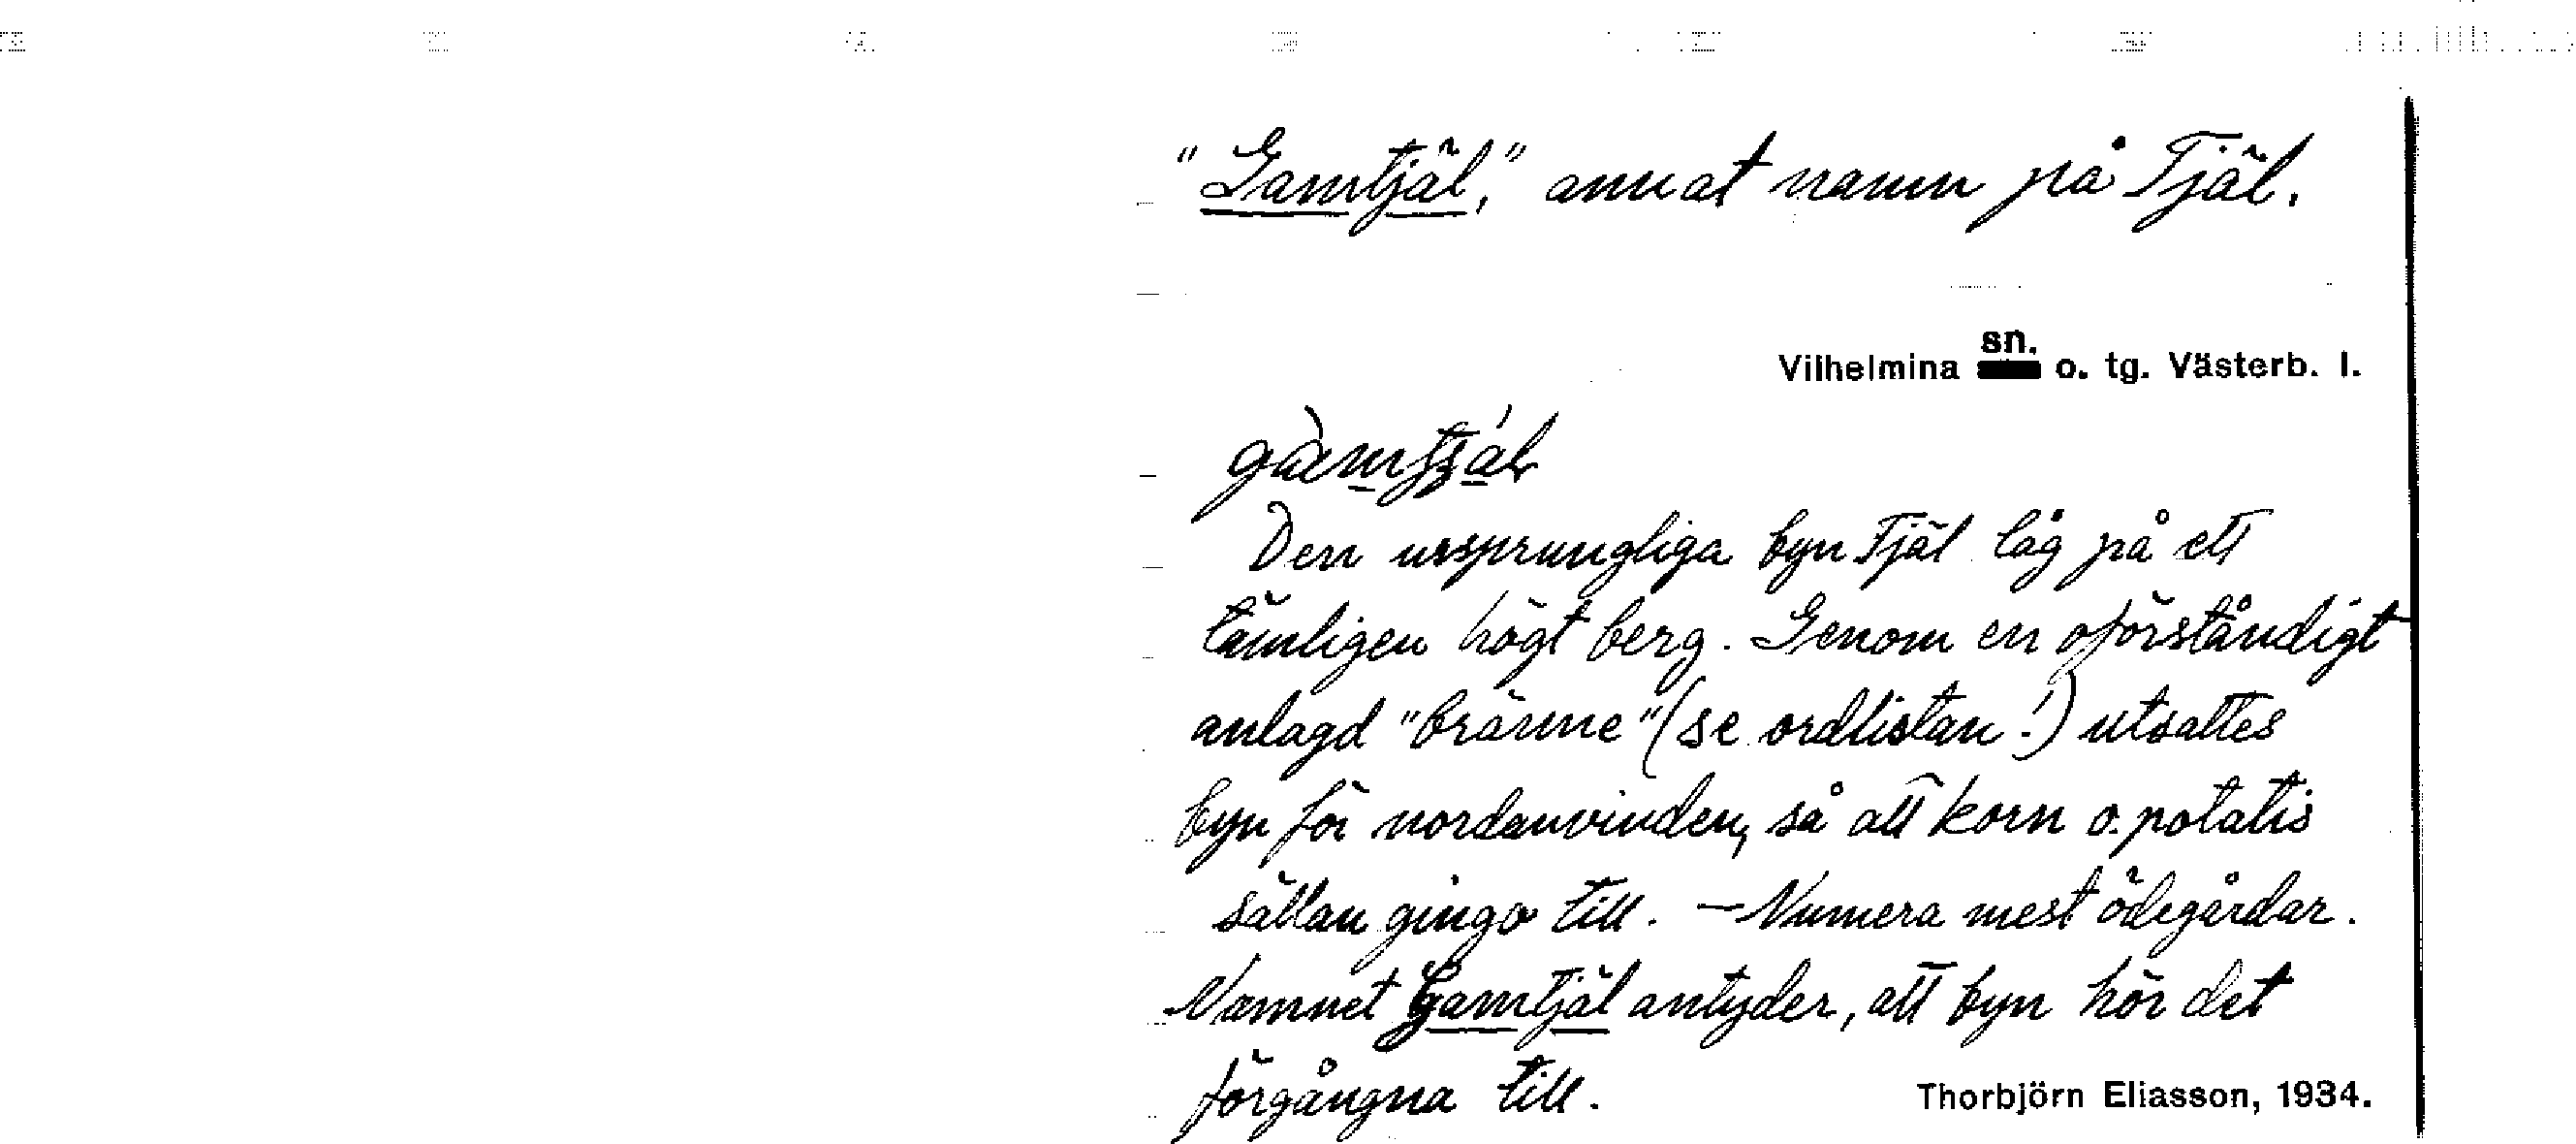 "Gamtjäl," annat namn på Tjäl.
Vilhelmina sn. o. tg. Västerb. l.
Den ursprungliga byn Tjäl låg på ett
tämligen högt berg. Genom en oförståndigt
anlagd "bränne" (se ordlistan!) utsattes
byn för nordanvinden, så att korn o. potatis
sällan gingo till. — Numera mest ödegårdar.
Namnet Gamtjäl antyder, att byn hör det
förgångna till.
Thorbjörn Eliasson, 1934.